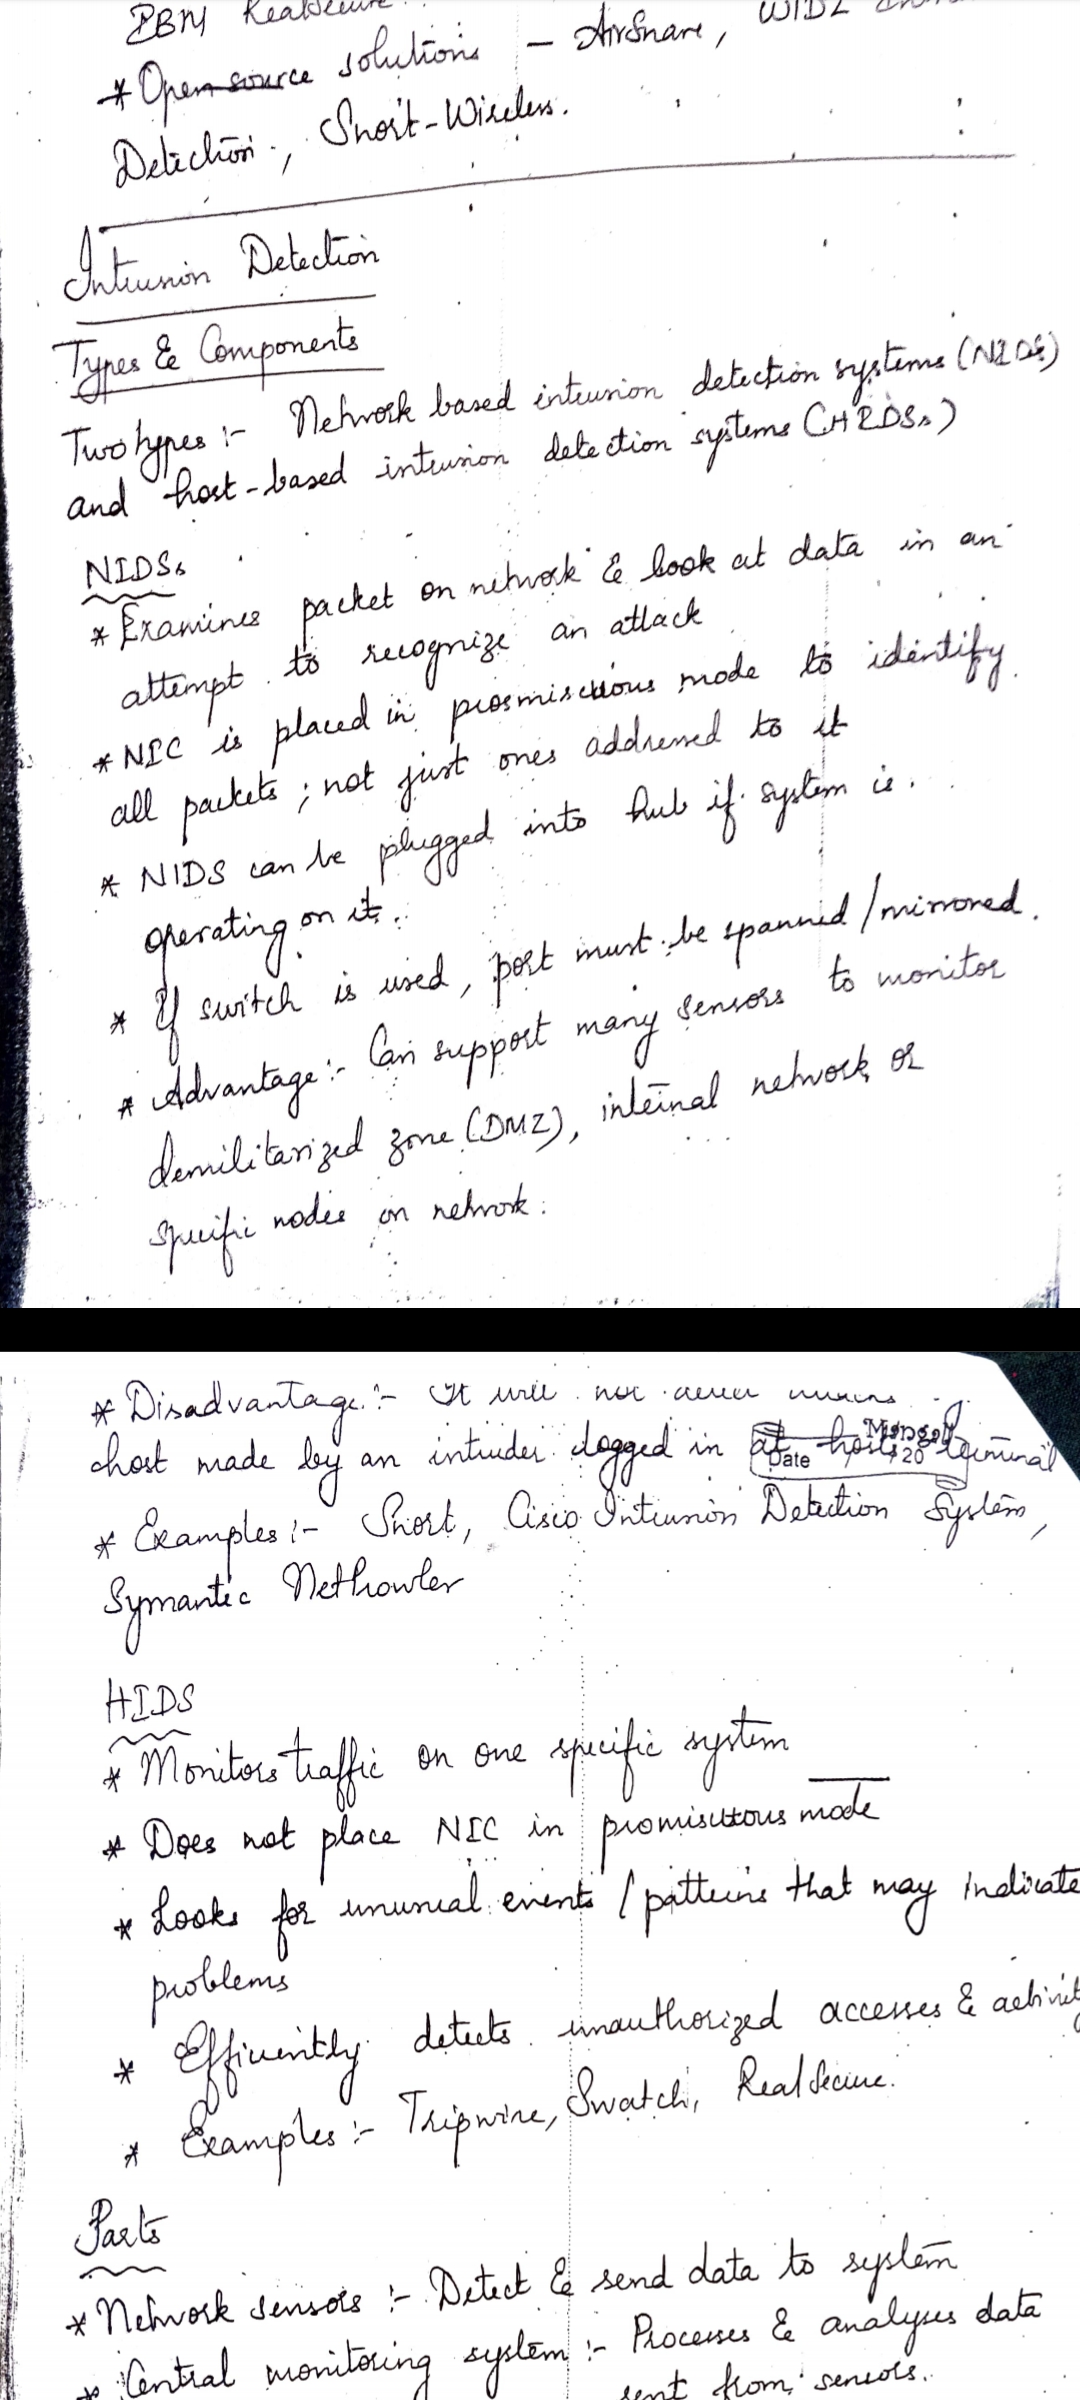 IBM RealSecure
* Open source solutions – AirSnare, WIDZ
Detection, Snort-Wireless.
Intrusion Detection
Types & Components
Two types :- Network based intrusion detection systems (NIDSs)
and host-based intrusion detection systems (HIDSs)
NIDSs
* Examines packet on network & look at data in an
attempt to recognize an attack
* NIC is placed in prosmiscuous mode to identify
all packets ; not just ones addressed to it
* NIDS can be plugged into hub if system is
operating on it.
* If switch is used, port must be spanned / mirrored.
* Advantage :- Can support many sensors to monitor
demilitarized zone (DMZ), internal network or
specific nodes on network.
* Disadvantage :- It will not
host made by an intruder logged in at hosts terminal
Mangal
Date / / 20
* Examples :- Snort, Cisco Intrusion Detection System,
Symantec NetProwler
HIDS
* Monitors traffic on one specific system
* Does not place NIC in promiscuous mode
* Looks for unusual events / patterns that may indicate
problems
* Efficiently detects unauthorized accesses &
* Examples :- Tripwire, Swatch, RealSecure.
Parts
* Network sensors :- Detect & send data to system
* Central monitoring system :- Processes & analyses data
sent from sensors.